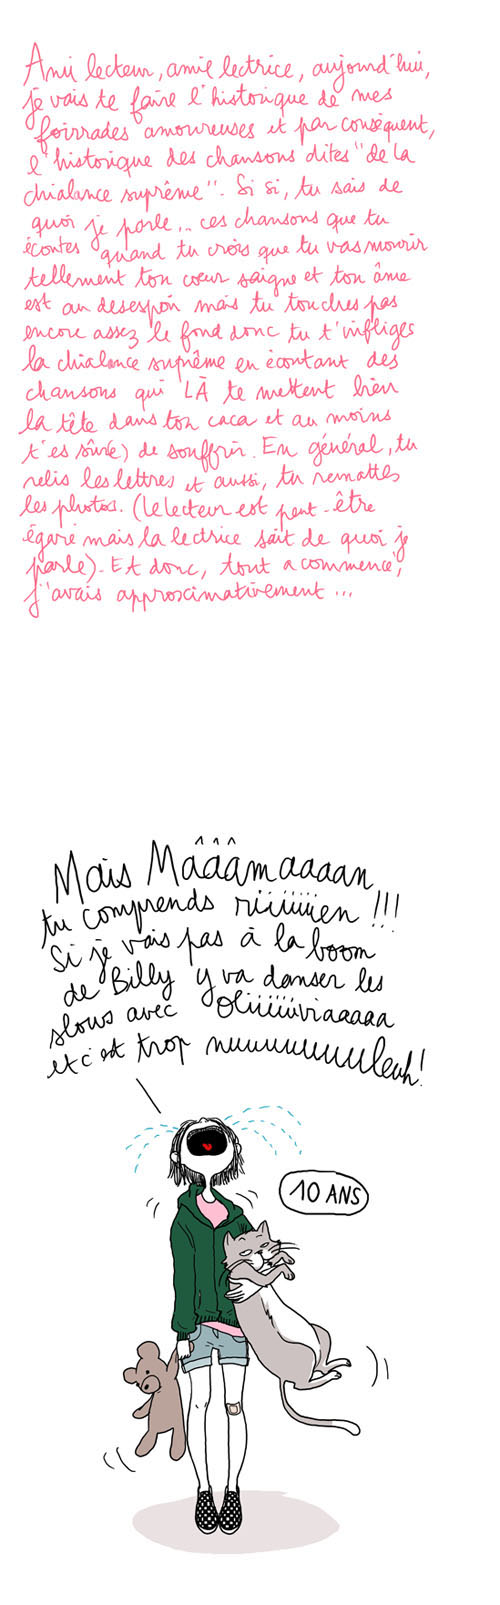 Ami lecteur, amie lectrice, aujourd'hui,
je vais te faire l'historique de mes
foirrades amoureuses et par conséquent,
l'historique des chansons dites "de la
chialance suprême". Si si, tu sais de
quoi je parle... ces chansons que tu
écoutes quand tu crois que tu vas mourir
tellement ton cœur saigne et ton âme
est au desespoir mais tu touches pas
encore assez le fond donc tu t'infliges
la chialance suprême en écoutant des
chansons qui LÀ te mettent bien
la tête dans ton caca et au moins
t'es sûr(e) de souffrir. En général, tu
relis les lettres et aussi, tu remattes
les photos. (Le lecteur est peut-être
égaré mais la lectrice sait de quoi je
parle). Et donc, tout a commencé,
j'avais approximativement ...
Mais Mâââmaaaan
tu comprends riiiiiiien !!!
Si je vais pas à la boom
de Billy y va danser les
slows avec Oliiiiiviaaaaa
et c'est trop nuuuuuuuuleuh!
10 ANS